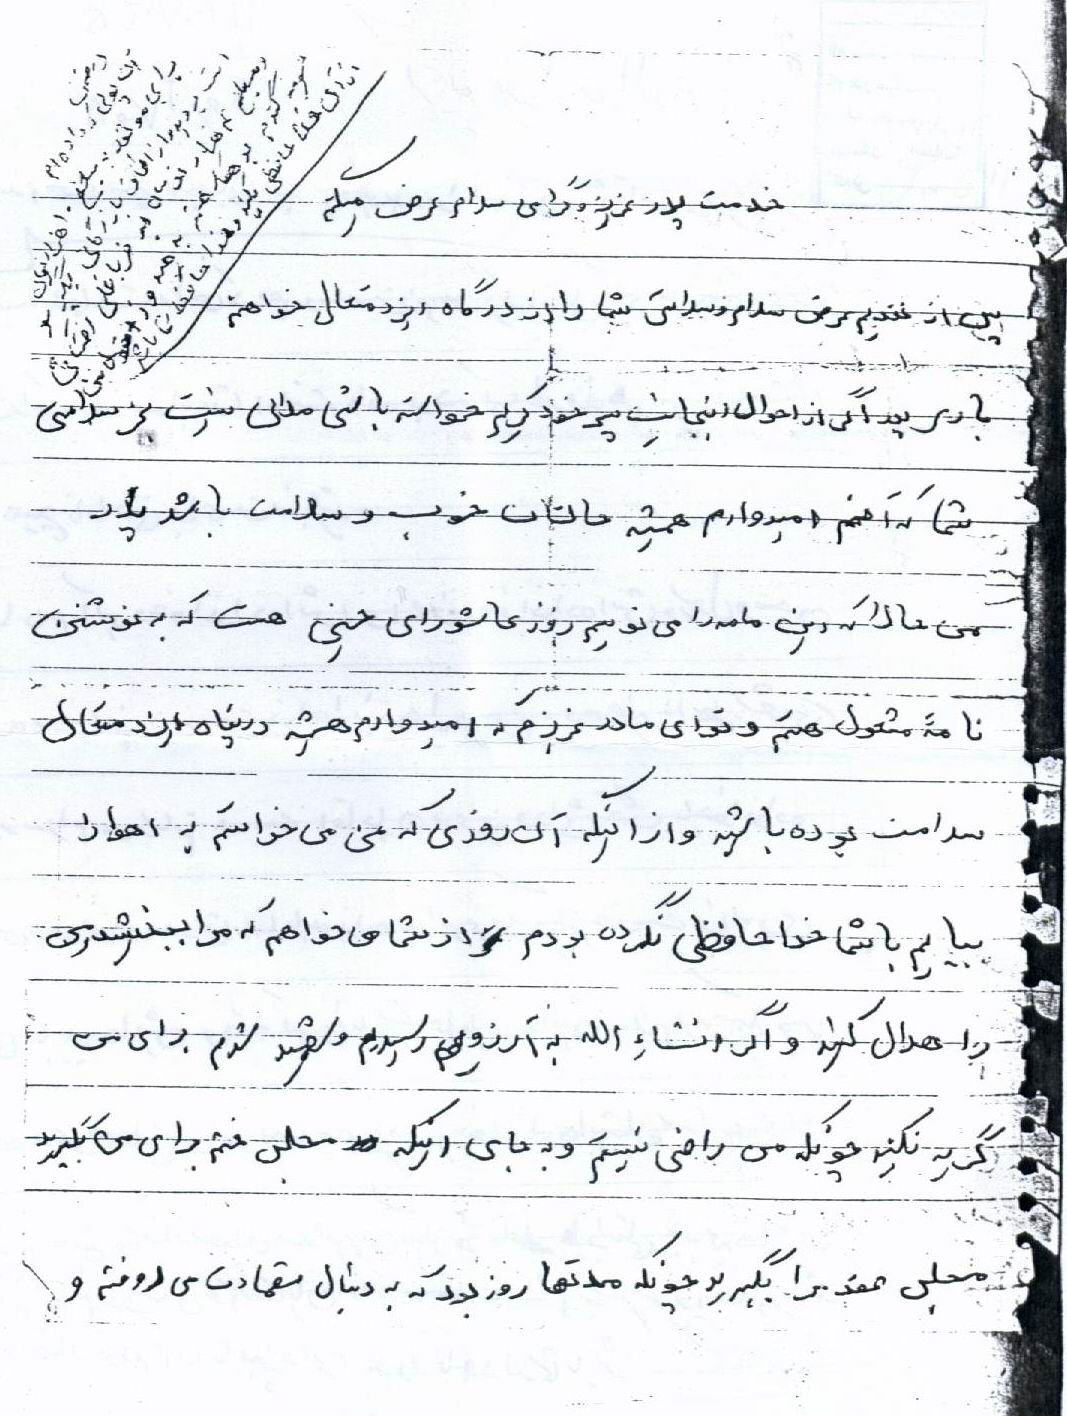 خدمت پدر عزیز و گرامی سلام عرض میکنم
پس از تقدیم عرض سلام و سلامتی شما را از درگاه ایزد متعال خواهانم
باری پدر اگر از احوال اینجانب پسر خود کرم خواسته باشی ملالی نیست بجز سلامتی
شما که آنهم امیدوارم همیشه حالتان خوب و سلامت باشد پدر
من حالا که این نامه را می نویسم روز عاشورای حسینی هست که به نوشتن
نامه مشغول هستم و تو ای مادر عزیزم که امیدوارم همیشه در پناه ایزد متعال
سلامت بوده باشید و از اینکه آن روزی که من می خواستم به اهواز
بیایم با شما خداحافظی نکرده بودم از شما می خواهم که مرا ببخشید
را حلال کنید و اگر انشاء الله به آرزویم رسیدم و شهید شدم برای من
گریه نکنید چونکه من راضی نیستم و به جای اینکه مجلس ختم برای من بگیرید
مجلس عقد مرا بگیرید چونکه مدتها روز بود که به دنبال شهادت می رفتم و